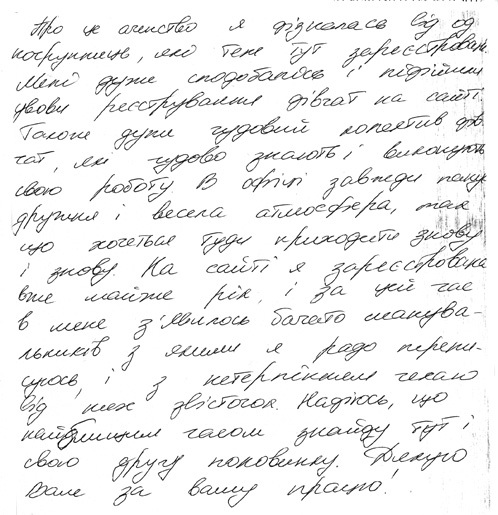 Про це агенство я дізналась від од
нокрупниць, які теж тут зареєстрован
Мені дуже сподобались і підійшли
умови реєстрування дівчат на сайті.
Також дуже чудовий колектив дів
чат, які чудово знають і виконують
свою роботу. В офісі завжди панує
дружня і весела атмосфера, так
що хочеться туди приходити знову
і знову. На сайті я зареєстрована
вже майже рік, і за цей час
в мене з'явилось багато шанува-
льників з якими я радо перепи-
суюсь, і з нетерпінням чекаю
від них звісточок. Надіюсь, що
найблищим часом знайду тут і
свою другу половинку. Дякую
Вам за вашу працю!